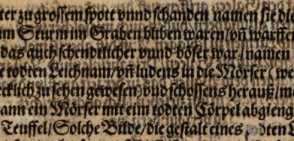 ter zu grossem spott vnnd schanden namen sie die
im Sturm im Graben bliben waren/ vñ warffen
das auch schendtlicher vund böser war/ namen
e todten Leichnam/ vñ ludens in die Mörser (we
cklich zu sehen gewesen) vnd schossens herauß/ ma
ann ein Mörser mit eim todten Cörpel abgieng
Teuffel/ Solche Bilde/ die gestalt eines todten L